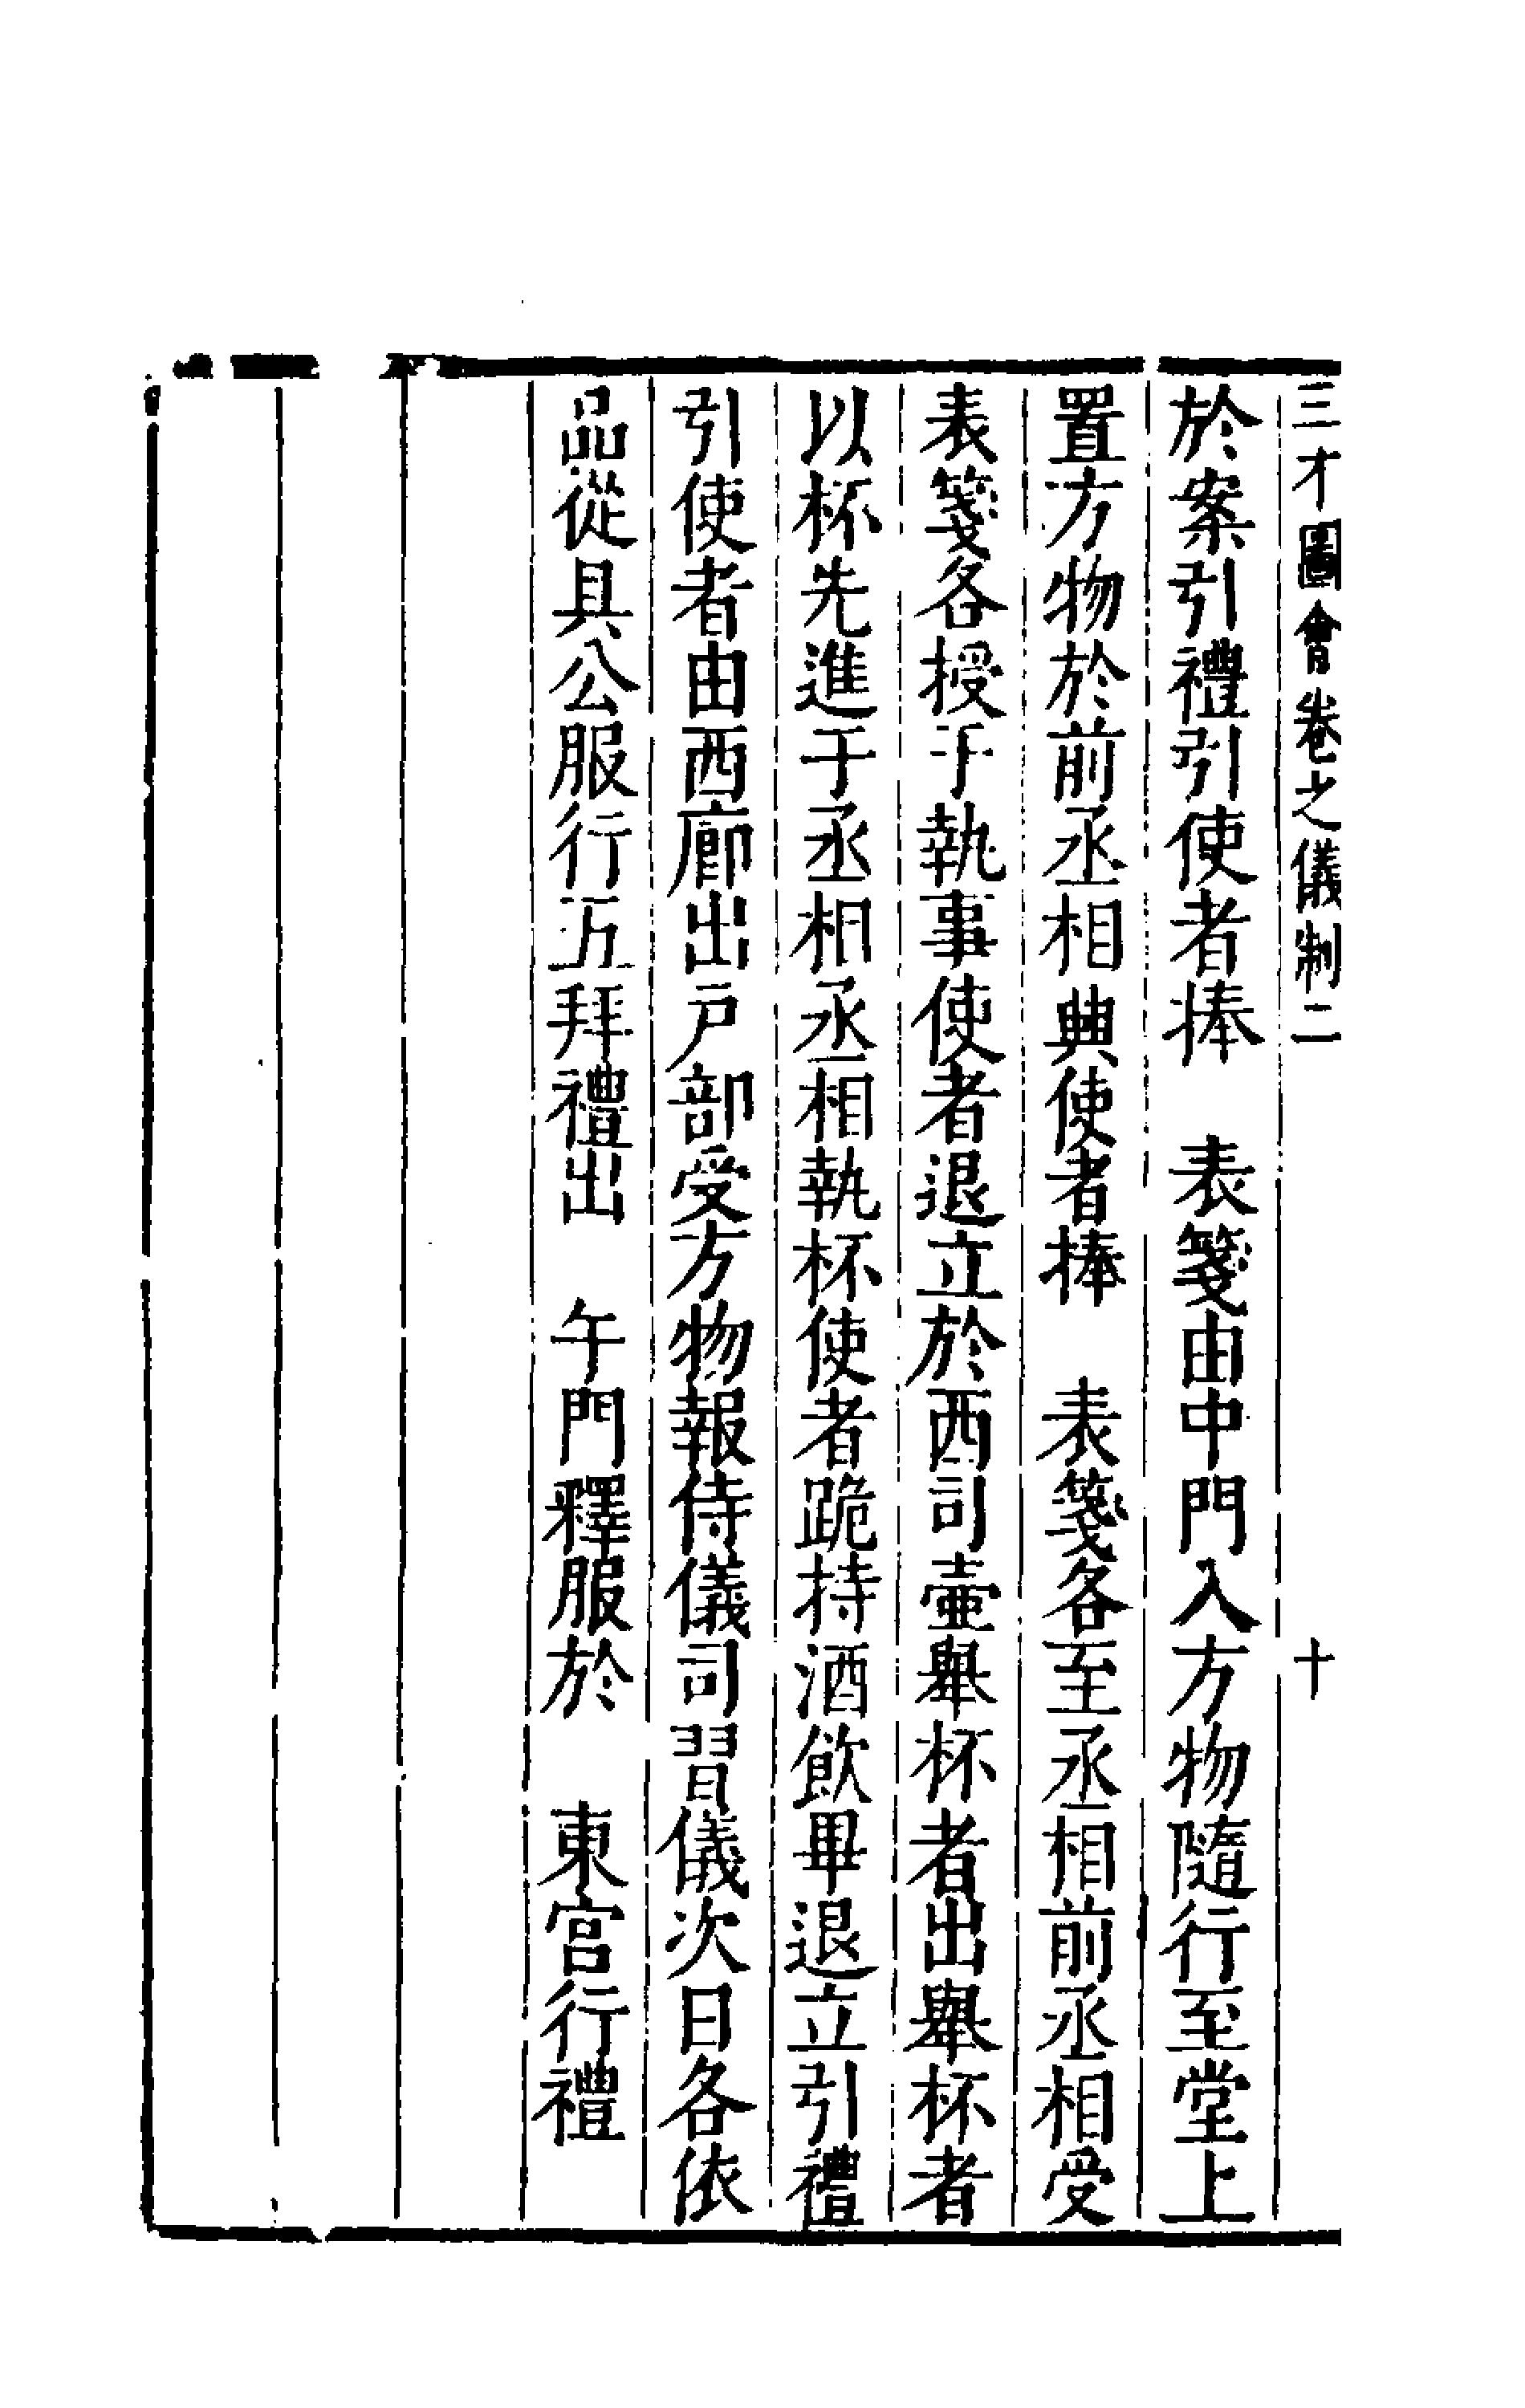 三才圖會卷之儀制二 十
於案引禮引使者捧 表箋由中門入方物隨行至堂上
置方物於前丞相典使者捧 表箋各至丞相前丞相受
表箋各授于執事使者退立於西司壷舉杯者出舉杯者
以杯先進于丞相丞相執杯使者跪持酒飲畢退立引禮
引使者由西廊出戸部受方物報侍儀司習儀次日各依
品從具公服行五拜禮出 午門釋服於 東宮行禮